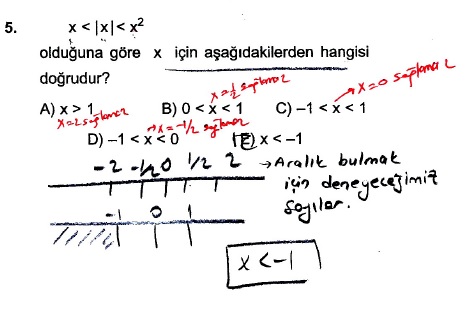 5. x < |x| < x²
olduğuna göre x için aşağıdakilerden hangisi
doğrudur?
x=½ sağlamaz
x=0 sağlamaz
A) x > 1 B) 0 < x < 1 C) −1 < x < 1
x=2 sağlamaz
x=-1/2 sağlamaz
D) −1 < x < 0 E) x < −1
-2 -1/2 0 1/2 2
→ Aralık bulmak
için deneyeceğimiz
sayılar.
-1 0 1
x < -1